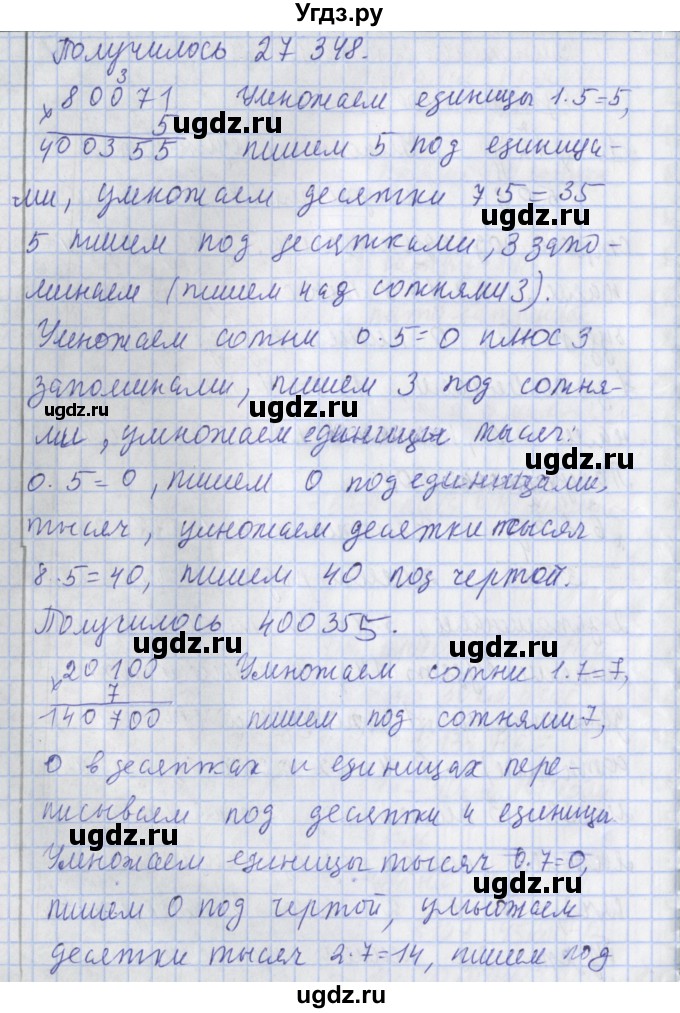 Угдз.ру
Получилось 27 348.
3
80071 Умножаем единицы 1·5=5,
× 5
400355 пишем 5 под единица-
ми, умножаем десятки 7·5=35
5 пишем под десятками, 3 запо-
минаем (пишем над сотнями 3).
Умножаем сотни 0·5=0 плюс 3
запоминами, пишем 3 под сотня-
ми, умножаем единицы тысяч:
0·5=0, пишем 0 под единицами,
тысяч, умножаем десятки тысяч
8·5=40, пишем 40 под чертой.
Получилось 400355.
20100 Умножаем сотни 1·7=7,
× 7
140700 пишем под сотнями 7,
0 в десятках и единицах пере-
писываем под десятки и единицы
Умножаем единицы тысяч 0·7=0,
пишем 0 под чертой, умножаем
десятки тысяч 2·7=14, пишем под
ugdz.ru
ugdz.ru
ugdz.ru
ugdz.ru
ugdz.ru
ugdz.ru
ugdz.ru
ugdz.ru
ugdz.ru
ugdz.ru
ugdz.ru
ugdz.ru
ugdz.ru